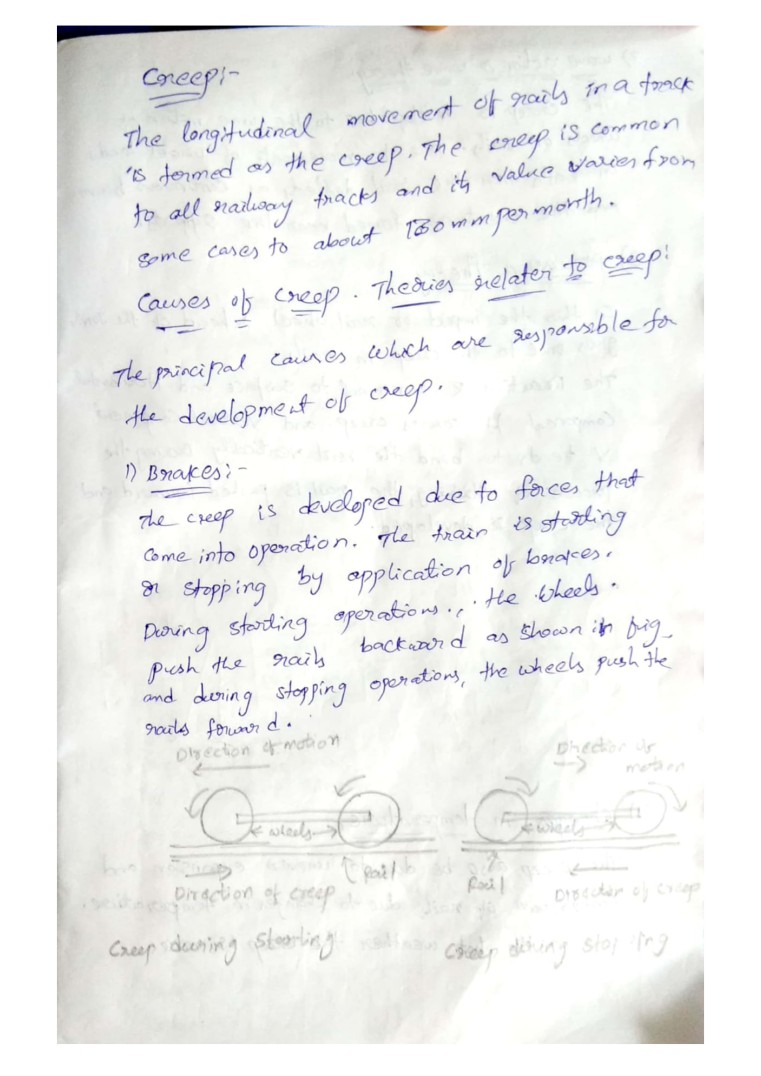 Creep:-
The longitudinal movement of rails in a track
is termed as the creep. The creep is common
to all railway tracks and its value varies from
some cases to about 130 mm per month.
Causes of creep. Theories relater to creep:
The principal causes which are responsible for
the development of creep.
1) Brakes:-
The creep is developed due to forces that
come into operation. The train is starting
or stopping by application of brakes.
During starting operations.,. the wheels.
push the rails backward as shown in fig
and during stopping operations, the wheels push the
rails forward.
Direction of motion
Direction of
motion
wheels
wheels
Rail
Rail
Direction of creep
Direction of creep
Creep during Starting
Creep during stopping